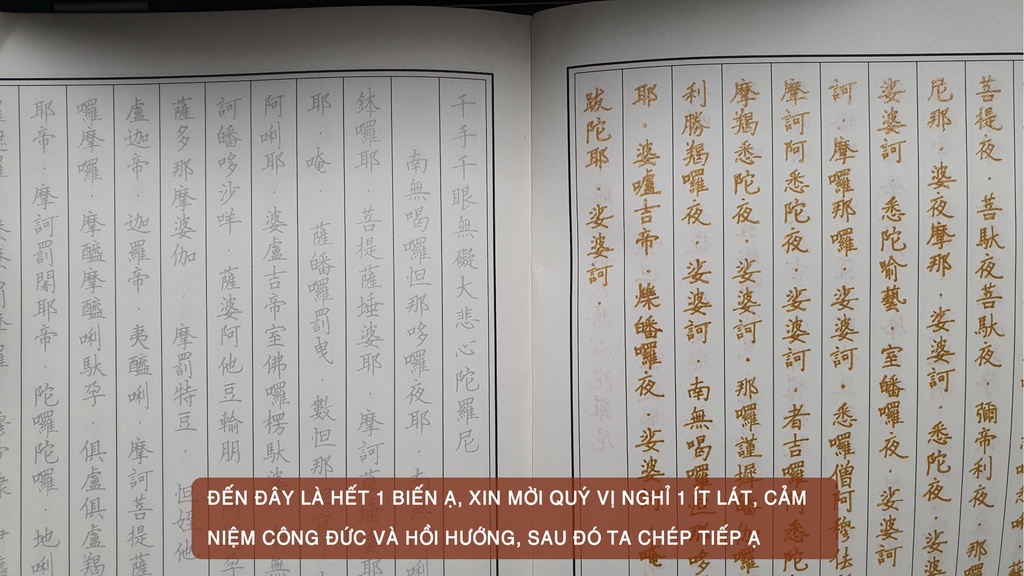 菩提夜·菩馱夜菩馱夜·彌帝利夜·那
尼那·婆夜摩那·娑婆訶·悉陀夜·娑婆
娑婆訶·悉陀喻藝·室皤囉夜·娑婆訶
訶·摩囉那囉·娑婆訶·悉囉僧阿穆佉
摩訶阿悉陀夜·娑婆訶·者吉囉阿悉陀
摩羯悉陀夜·娑婆訶·那囉謹墀皤伽囉
利勝羯囉夜·娑婆訶·南無喝囉怛那哆
耶·婆嚧吉帝·爍皤囉夜·娑婆訶·唵
跋陀耶·娑婆訶·
千手千眼無礙大悲心陀羅尼
南無喝囉怛那哆囉夜耶·南無
鉢囉耶·菩提薩埵婆耶·摩訶薩埵
耶·唵·薩皤囉罰曳·數怛那
阿唎耶·婆盧吉帝室佛囉楞馱婆
訶皤哆沙咩·薩婆阿他豆輸朋
薩多那摩婆伽·摩罰特豆·怛姪他
盧迦帝·迦羅帝·夷醯唎·摩訶菩提薩
囉摩囉·摩醯摩醯唎馱孕·俱盧俱盧羯
耶帝·摩訶罰闍耶帝·陀囉陀囉·地唎
ĐẾN ĐÂY LÀ HẾT 1 BIẾN Ạ, XIN MỜI QUÝ VỊ NGHỈ 1 ÍT LÁT, CẢM
NIỆM CÔNG ĐỨC VÀ HỒI HƯỚNG, SAU ĐÓ TA CHÉP TIẾP Ạ